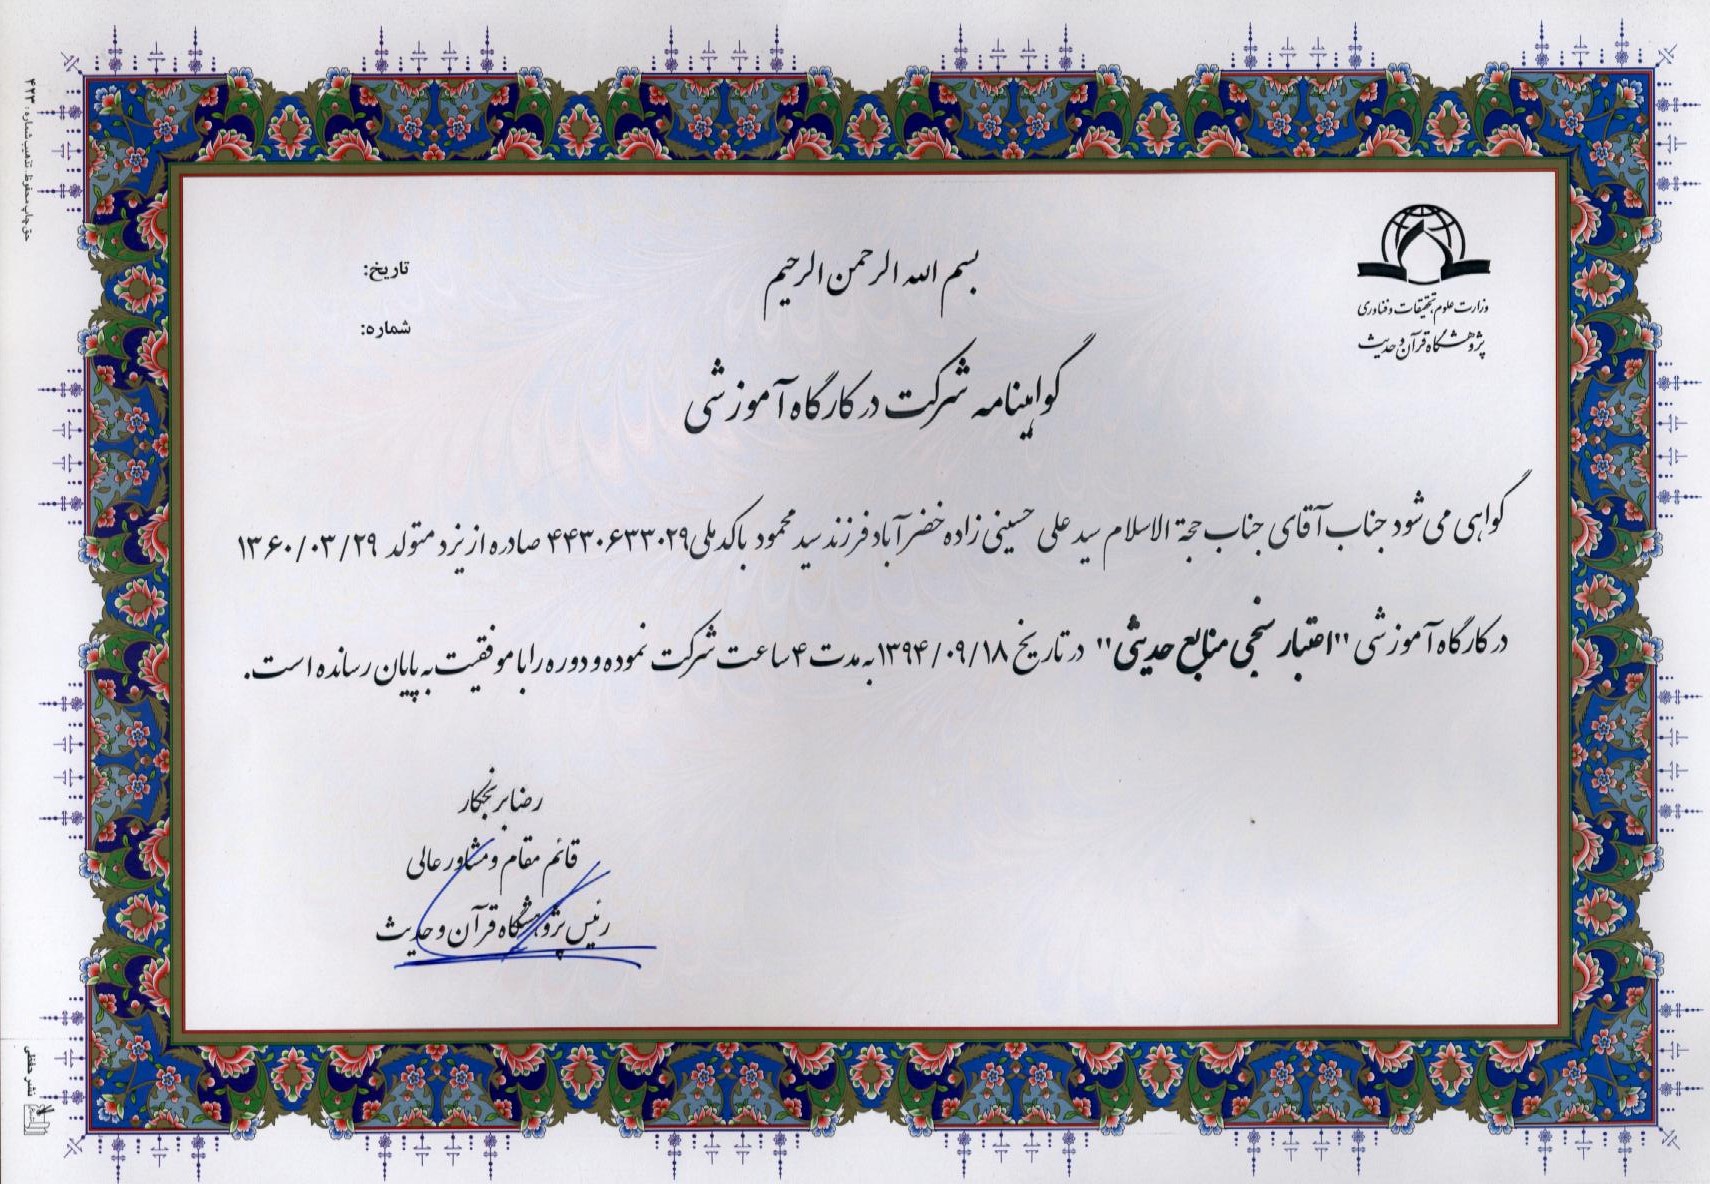 بسم الله الرحمن الرحیم
تاریخ:
شماره:
وزارت علوم، تحقیقات و فناوری
پژوهشگاه قرآن و حدیث
گواهینامه شرکت در کارگاه آموزشی
گواهی می شود جناب آقای جناب حجة الاسلام سید علی حسینی زاده خضرآباد فرزند سید محمود باکد ملی ۴۴۳۰۶۳۳۰۲۹ صادره از یزد متولد ۱۳۶۰/۰۳/۲۹
در کارگاه آموزشی "اعتبار سنجی منابع حدیثی" در تاریخ ۱۳۹۴/۰۹/۱۸ به مدت ۴ ساعت شرکت نموده و دوره را با موفقیت به پایان رسانده است.
رضا برنجکار
قائم مقام و مشاور عالی
رئیس پژوهشگاه قرآن و حدیث
حق چاپ محفوظ. تذهیب شماره: ۴۲۱۳
نشر حفظی